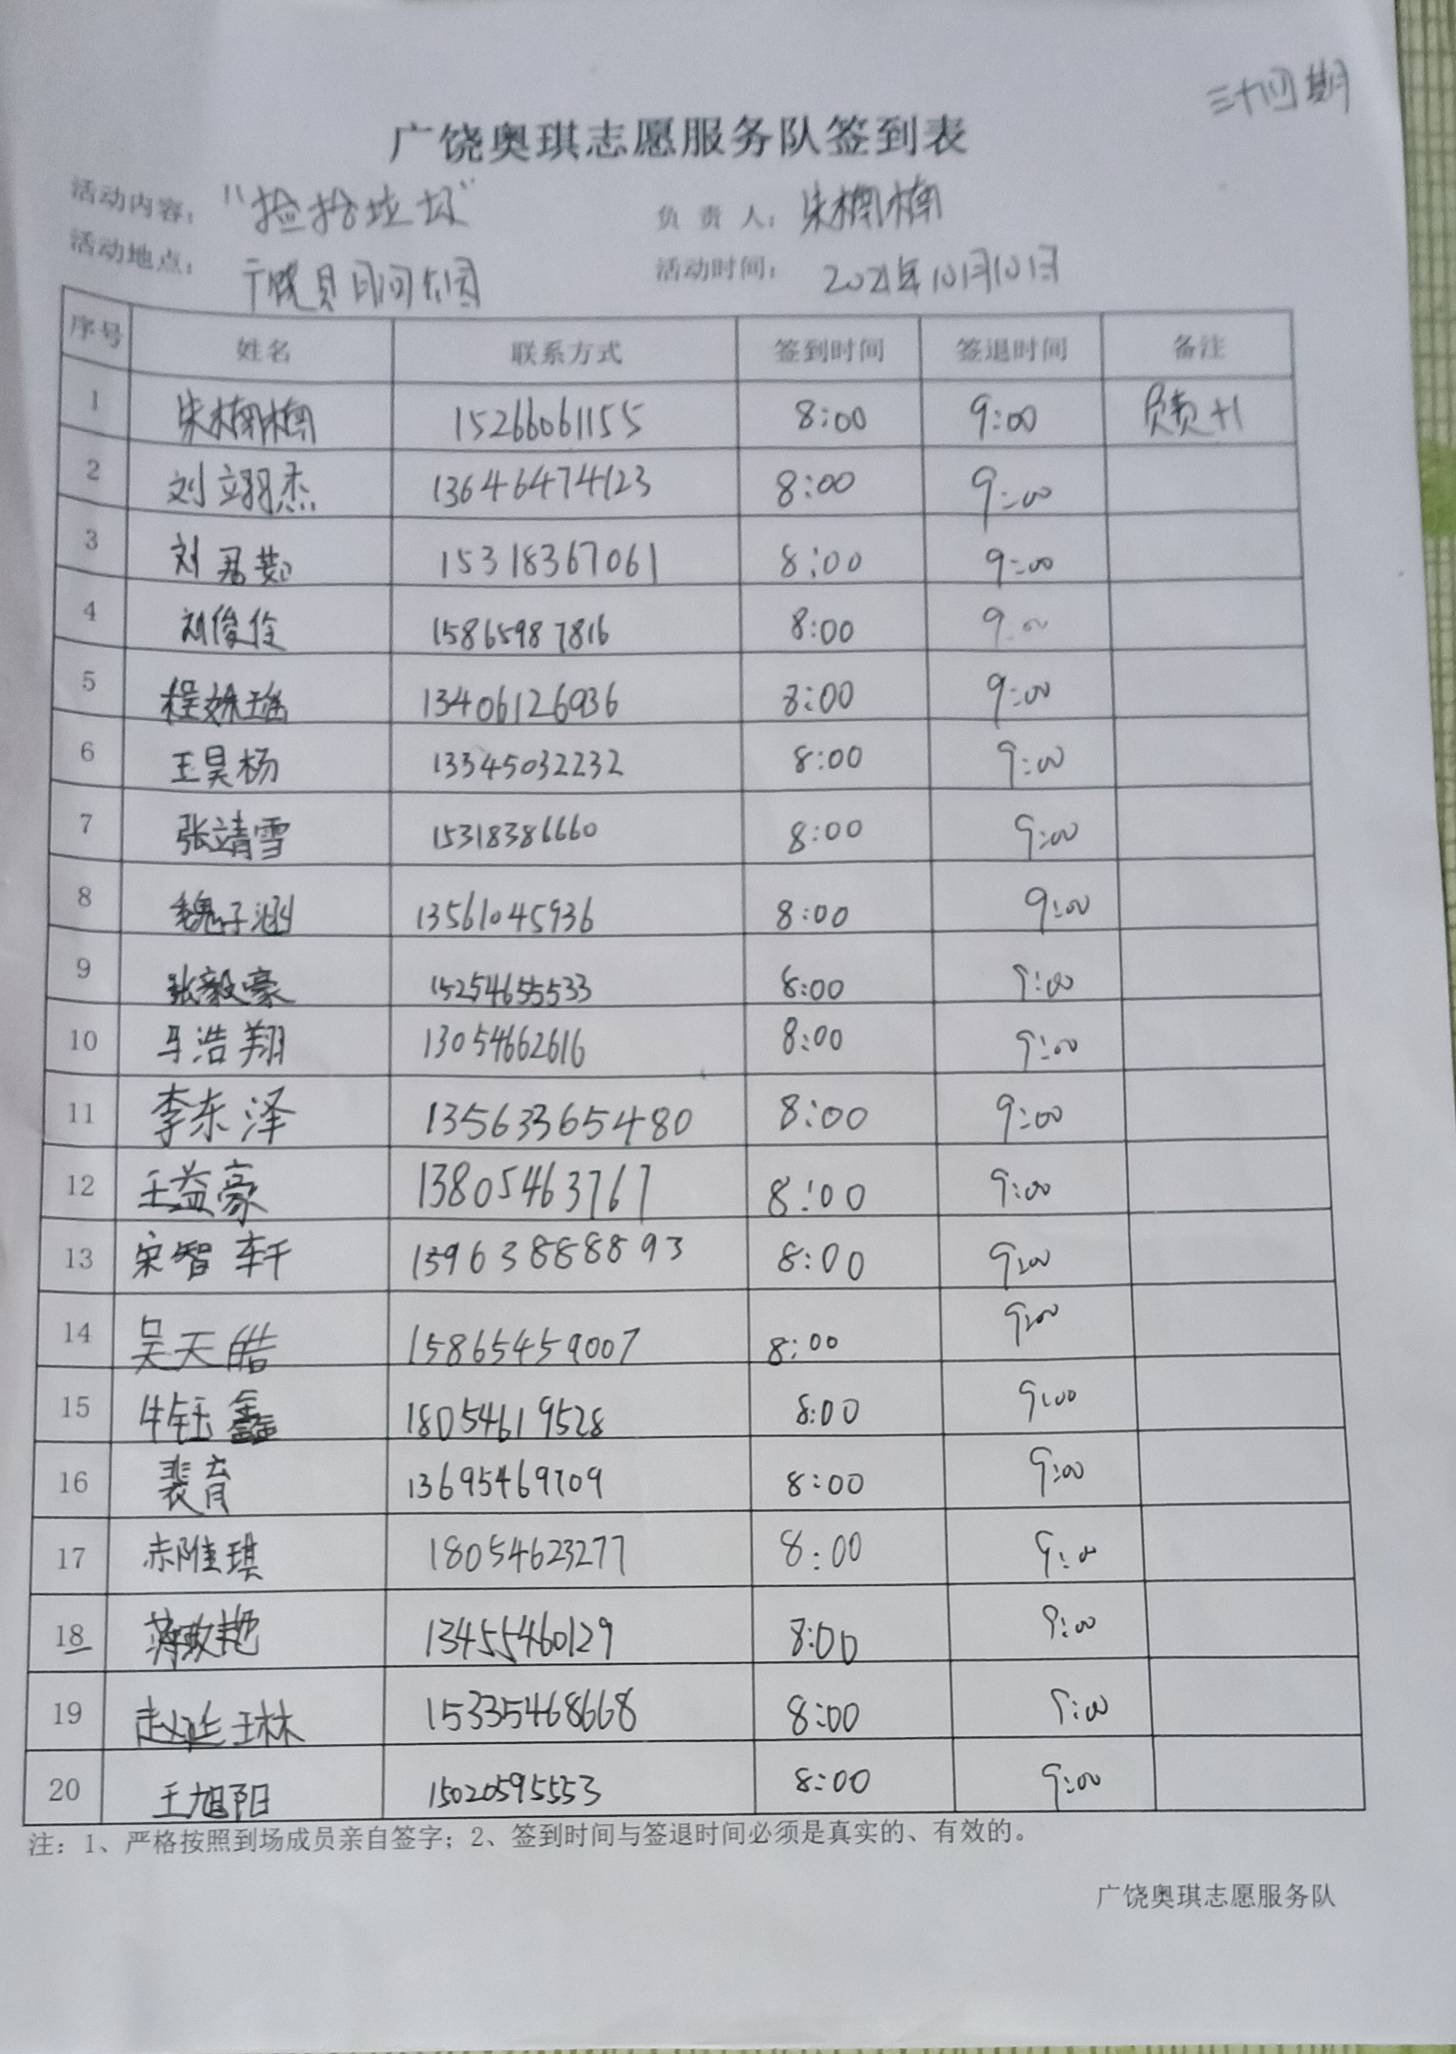 三十四期
广饶奥琪志愿服务队签到表
活动内容：“捡拾垃圾” 负 责 人：朱楠楠
活动地点： 广饶县 公园 活动时间：2021年10月10日
序号 姓名 联系方式 签到时间 签退时间 备注
1 朱楠楠 15266061155 8:00 9:00 负责+1
2 刘翊杰 13646474123 8:00 9:00
3 刘君茹 15318367061 8:00 9:00
4 刘俊佺 15865987816 8:00 9:00
5 程姝瑶 13406126936 8:00 9:00
6 王昊杨 13345032232 8:00 9:00
7 张靖雪 15318386660 8:00 9:00
8 魏子涵 13561045936 8:00 9:00
9 张毅豪 15254655533 8:00 9:00
10 马浩翔 13054662616 8:00 9:00
11 李东泽 13563365480 8:00 9:00
12 王益豪 13805463767 8:00 9:00
13 宋智轩 13963888893 8:00 9:00
14 吴天皓 15865459007 8:00 9:00
15 牛钰鑫 18054619528 8:00 9:00
16 裴育 13695469709 8:00 9:00
17 琪 18054623277 8:00 9:00
18 蒋政艳 13455460129 8:00 9:00
19 赵延琳 15335468668 8:00 9:00
20 王旭阳 15020595553 8:00 9:00
注：1、严格按照到场成员亲自签字；2、签到时间与签退时间必须是真实的、有效的。
广饶奥琪志愿服务队